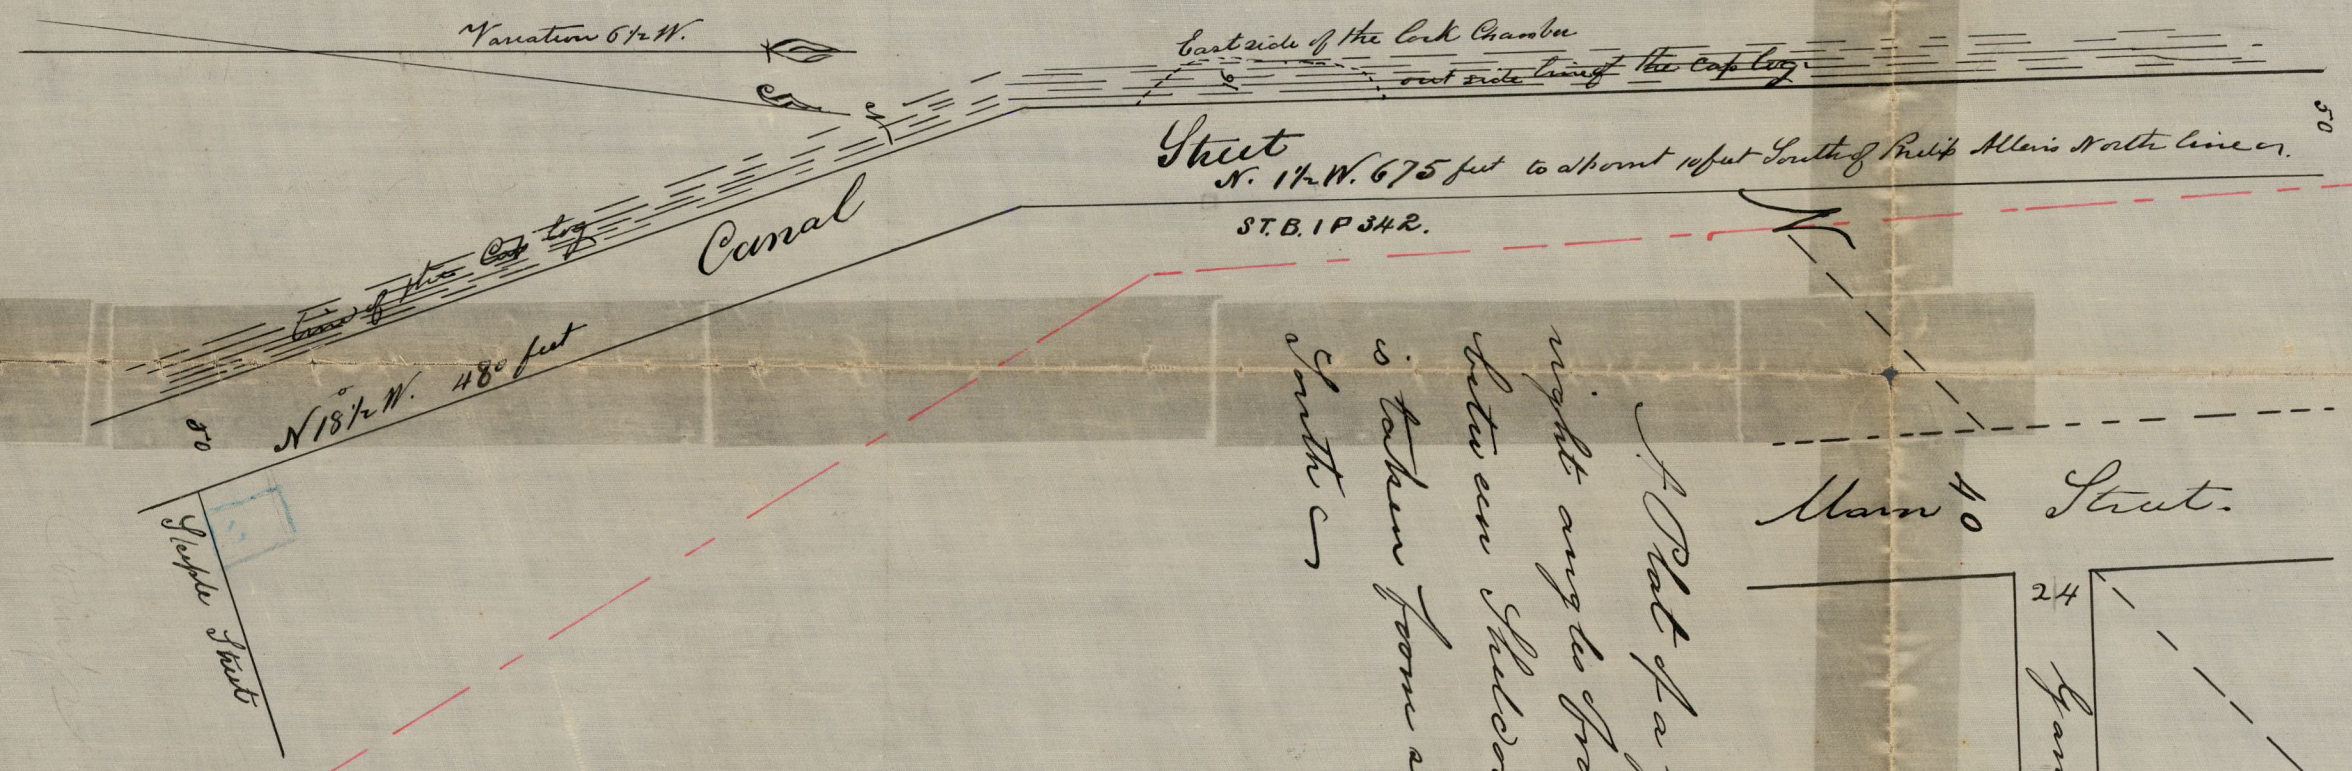 Variation 6½ W.
East side of the Lock Chamber
out side line of the Cap log.
6
50
Street
N. 1½ W. 675 feet to a point 10 feet South of Philip Allen's North line
ST. B. 1 P 342.
Canal
line of the Cap log
N 18½° W. 480 feet
50
Steeple Street
A Plat of a
right angles from
between Sheldo
is taken from s
South
Main 40 Street.
24
Gan